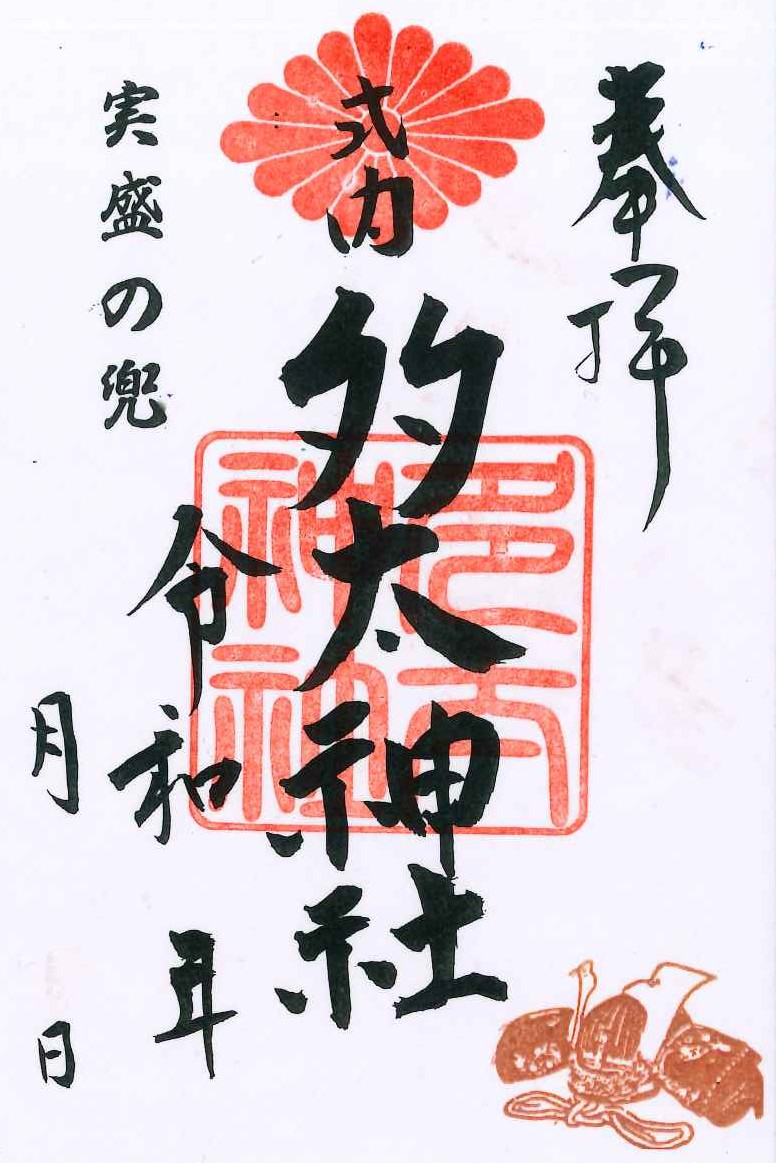 奉拝
式内
多太神社
多太神社
実盛の兜
令和 年
月 日